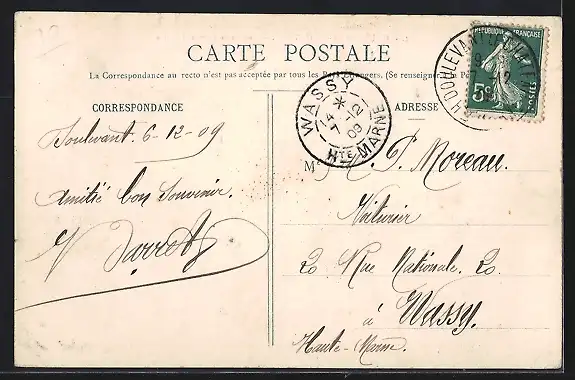 CARTE POSTALE
La Correspondance au recto n'est pas acceptée par tous les Pays Étrangers. (Se renseigner
CORRESPONDANCE
ADRESSE
RÉPUBLIQUE FRANÇAISE
5c
POSTES
DOULEVANT
WASSY
14
7-12
09
HTE MARNE
Doulevant. 6-12-09
Amitié bon Souvenir.
V Barret
M. P. Moreau.
Voiturier
20 Rue Nationale. 20
à Wassy.
Haute-Marne.